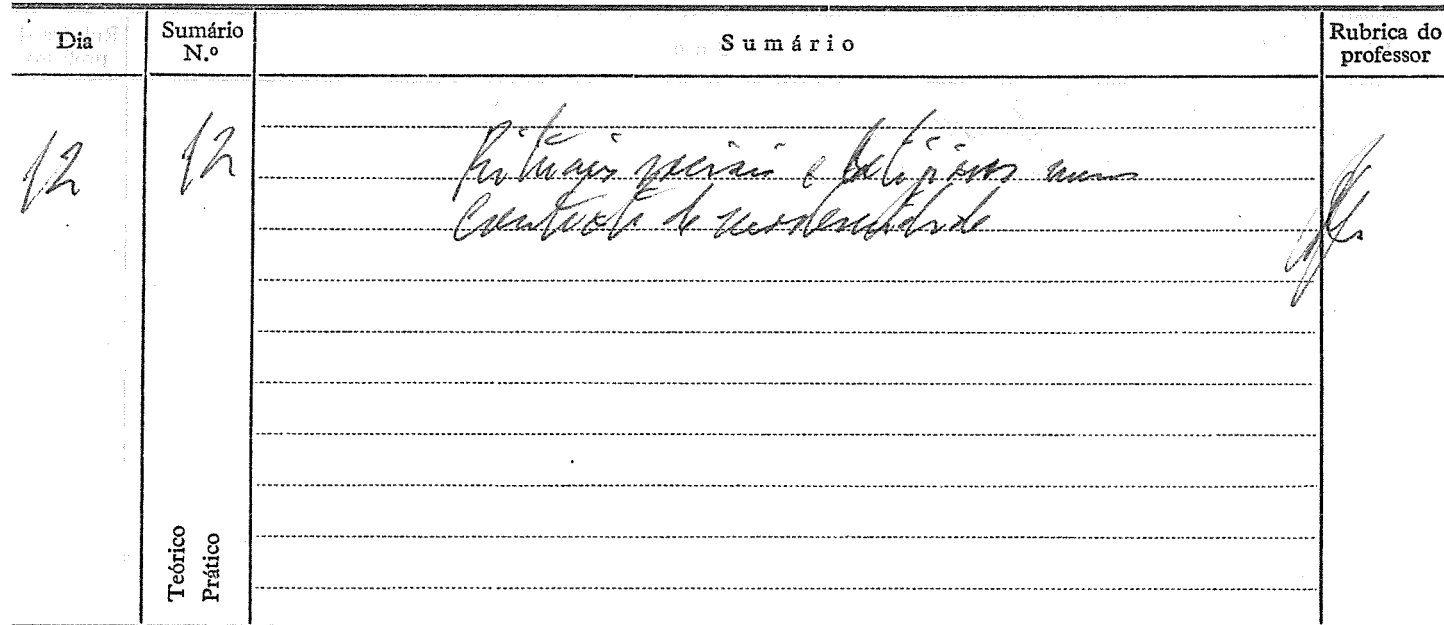 Dia
Sumário N.º
Sumário
Rubrica do professor
12
12
Rituais sociais e religiosos num
contexto de modernidade
Teórico
Prático